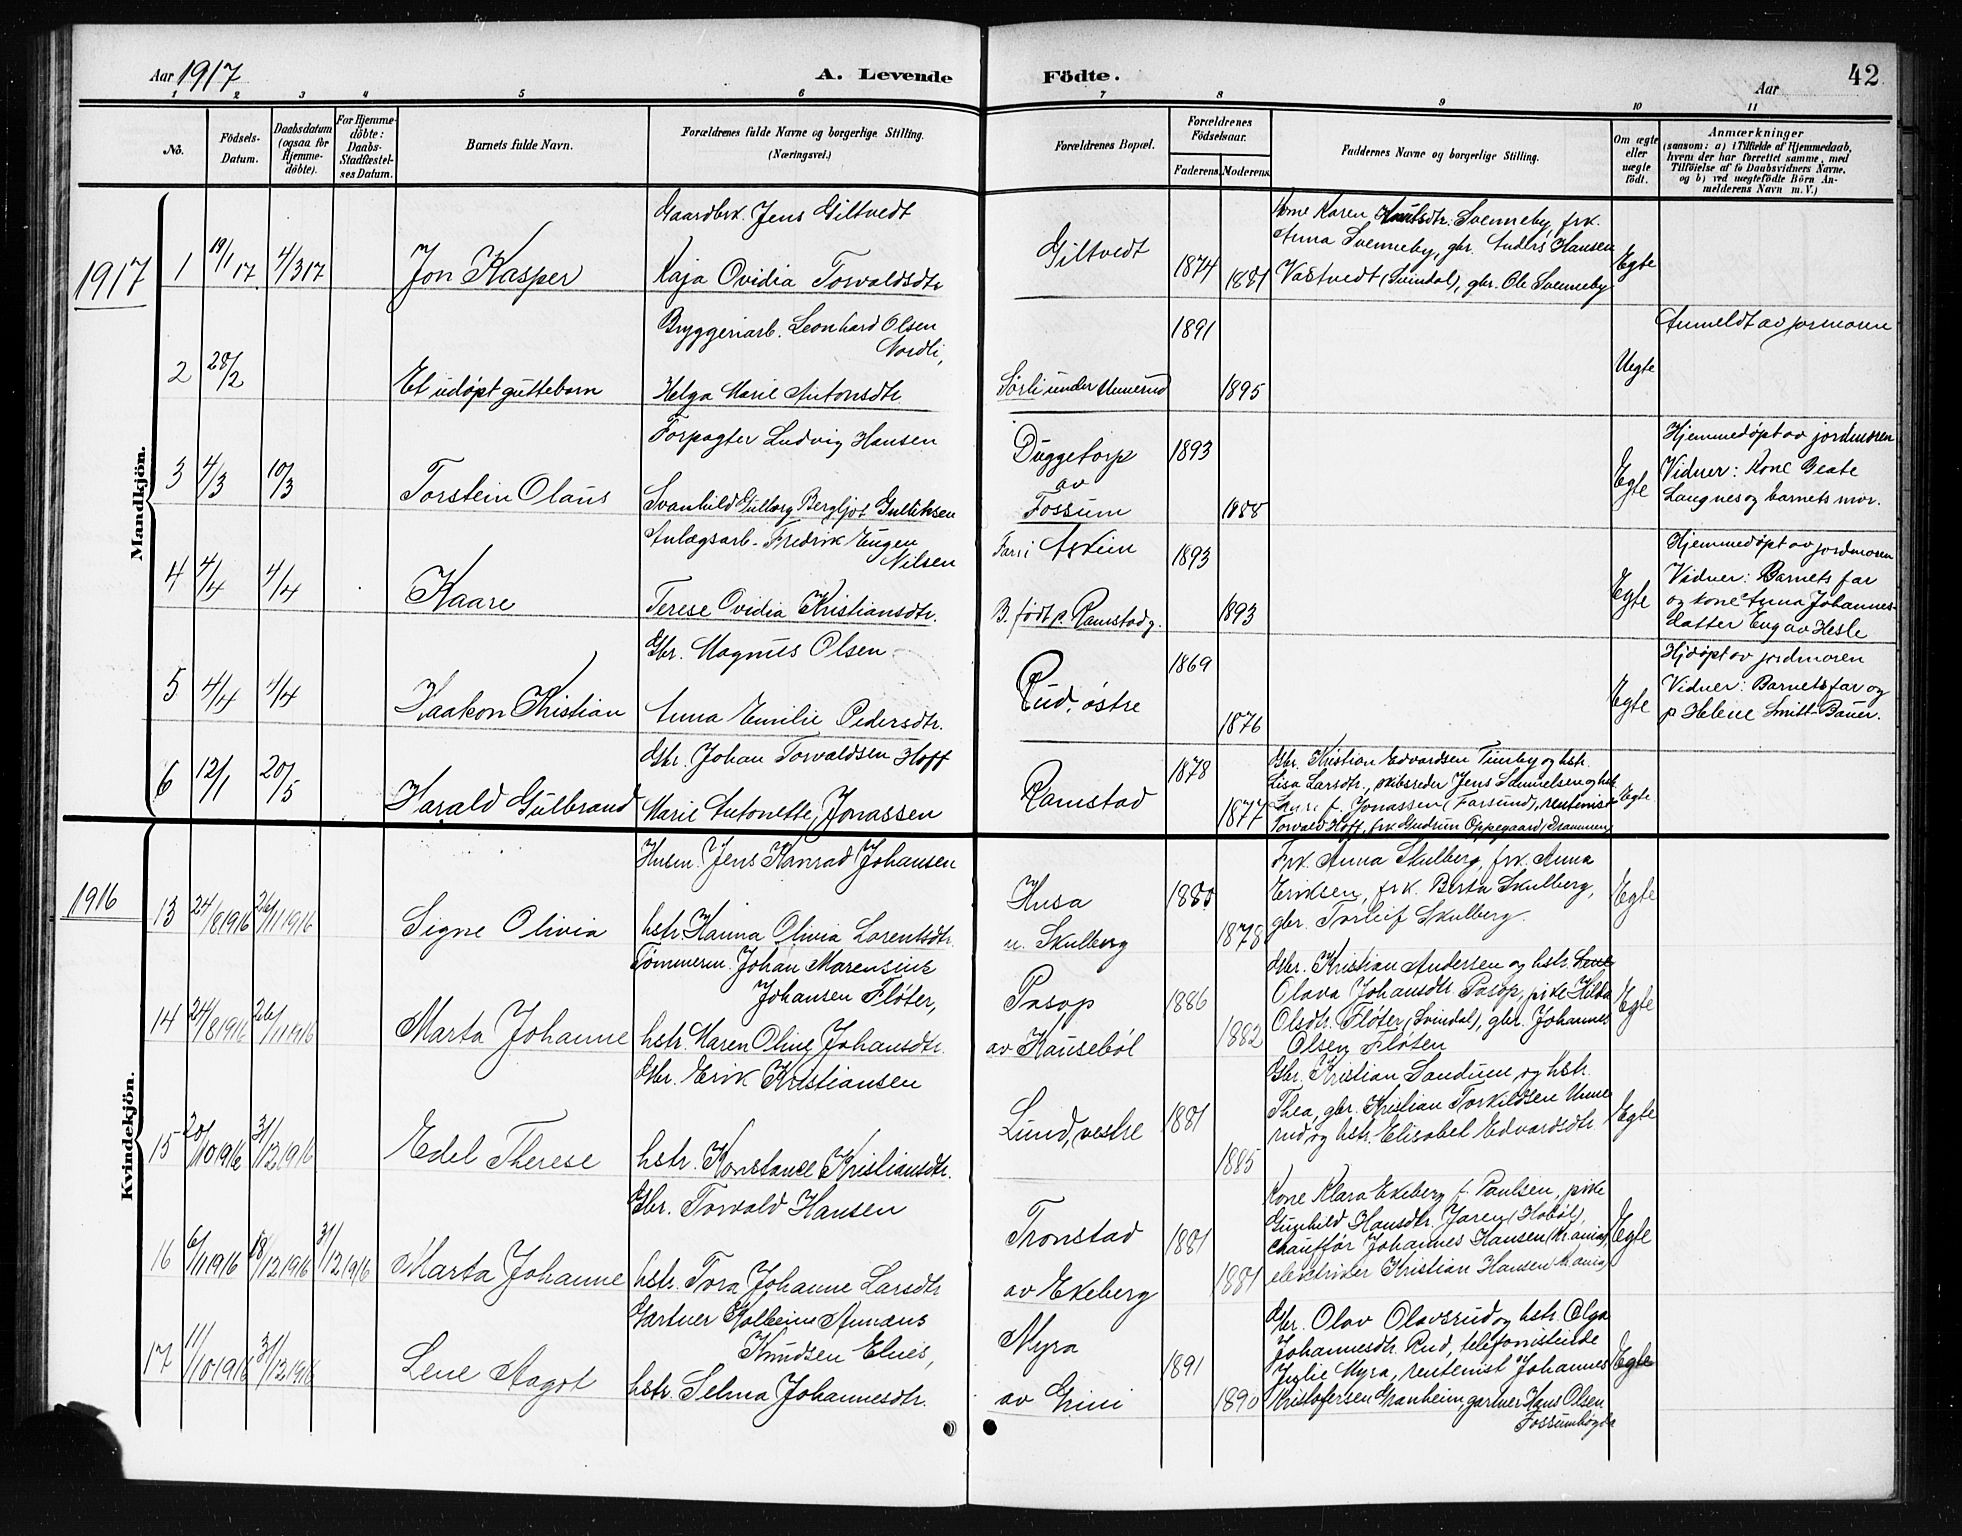 Aar 1917
A. Levende Födte.
Aar
42
1 2 3 4 5 6 7 8 9 10 11
No.
Födsels-Datum.
Daabsdatum (ogsaa for Hjemmedöbte).
For Hjemmedöbte: Daabs-Stadfæstelses Datum.
Barnets fulde Navn.
Forældrenes fulde Navne og borgerlige Stilling. (Næringsvei.)
Forældrenes Bopæl.
Forældrenes Födselsaar.
Faderens. Moderens.
Faddernes Navne og borgerlige Stilling.
Om ægte eller uægte födt.
Anmærkninger
(saasom: a) i Tilfælde af Hjemmedaab,
hvem der har forrettet samme, med
Tilföielse af to Daabsvidners Navne,
og b) ved uægtefödte Börn An-
melderens Navn m. V.)
Mandkjön.
1917
1 19/1 17 4/3 17 Jon Kasper
Gaardbrk. Jens Giltvedt
Kaja Ovidia Torvaldsdtr
Giltvedt
1874 1881
Kone Karen Knutsdtr. Svenneby, frk.
Anna Svenneby, gbr. Anders Hansen
Vastvedt (Svindal), gbr. Ole Svenneby
Egte
2 28/2 Et udøpt guttebarn
Bryggeriarb. Leonhard Olsen
Nordli,
Helga Marie Antonsdtr.
Sørli under Unnerud
1891 1895
Uegte
Anmeldt av jormoren
3 4/3 10/3 Torstein Olaus
Forpagter Ludvig Hansen
Svanhild Gulborg Bergljot Gulliksen
Duggetorp
av
Fossum
1893 1888
Egte
Hjemmedøpt av jordmoren
Vidner: Kone Beate
Langnes og barnets mor.
4 4/4 4/4 Kaare
Anlægsarb. Fredrik Eugen
Nilsen
Terese Ovidia Kristiansdtr.
Far i Askim
B. født p. Ramstad g.
1893 1893
Egte
Hjemmedøpt av jordmoren
Vidner: Barnets far
og kone Anna Johannes-
datter Eng av Hesle
5 4/4 4/4 Haakon Kristian
Gbr. Magnus Olsen
Anna Emilie Pedersdtr.
Rud, østre
1869 1876
Egte
Hjdøpt av jordmoren
Vidner: Barnets far og
p Helene Smitt-Bauer.
6 12/1 20/5 Harald Gulbrand
Gbr. Johan Torvaldsen Hoff
Marie Antonette, Jonassen
Ramstad
1878 1877
Gbr. Kristian Edvardsen Timby og hstr.
Lisa Larsdtr., skibsreder Jens Samuelsen og hstr.
f. Jonassen (Farsund), rentenist
Torvald Hoff, frk Gudrun Oppegaard (Drammen)
Egte
Kvindekjön.
1916
13 24/8 1916 26/11 1916 Signe Olivia
Husm. Jens Konrad Johansen
hstr. Hanna Olivia Lorentsdtr.
Husa
u. Skulberg
1880 1878
Frk. Anna Skulberg, frk. Anna
Eriksen, frk. Berta Skulberg,
gbr. Torleif Skulberg.
Egte
14 24/8 1916 26/11 1916 Marta Johanne
Tømmerm. Johan Marensius
Johansen Fløter,
hstr. Maren Oline Johansdtr.
Pasop
av Kausebøl
1886 1882
Gbr. Kristian Andersen og hstr. Lene
Olava Johansdtr. Pasop, pike Hilda
Olsdtr. Fløter (Svindal), gbr. Johannes
Olsen Fløten
Egte
15 20/10 1916 31/12 1916 Edel Therese
Gbr. Erik Kristiansen
hstr. Konstance Kristiansdtr.
Lund, vestre
1881 1885
Gbr. Kristian Sandum og hstr.
Thea, gbr. Kristian Torkildsen Unne
rud og hstr. Elisabet Edvardsdtr.
Egte
16 6/11 1916 18/12 1916 31/12 1916 Marta Johanne
Gbr. Torvald Hansen
hstr. Tora Johanne Larsdtr
Tronstad
av Ekeberg
1881 1881
Kone Klara Ekeberg f. Paulsen, pike
Gunhild Hansdtr. Jaren (Hobøl),
chauffør Johannes Hansen (Kr.ania),
elektriker Kristian Hansen (Kr.ania)
Egte
17 11/10 1916 31/12 1916 Lene Aagot
Gartner Holbein Amans
Knudsen Elnes,
hstr. Selma Johannesdtr.
Myra
av Grini
1891 1890
Gbr. Olav Olavsrud og hstr. Olga
Johannesdtr. Rud, telefonistinde
Julie Myra, rentenist Johannes
Kristofersen Granheim, gartner Hans Olsen
Fossumbøgda
Egte